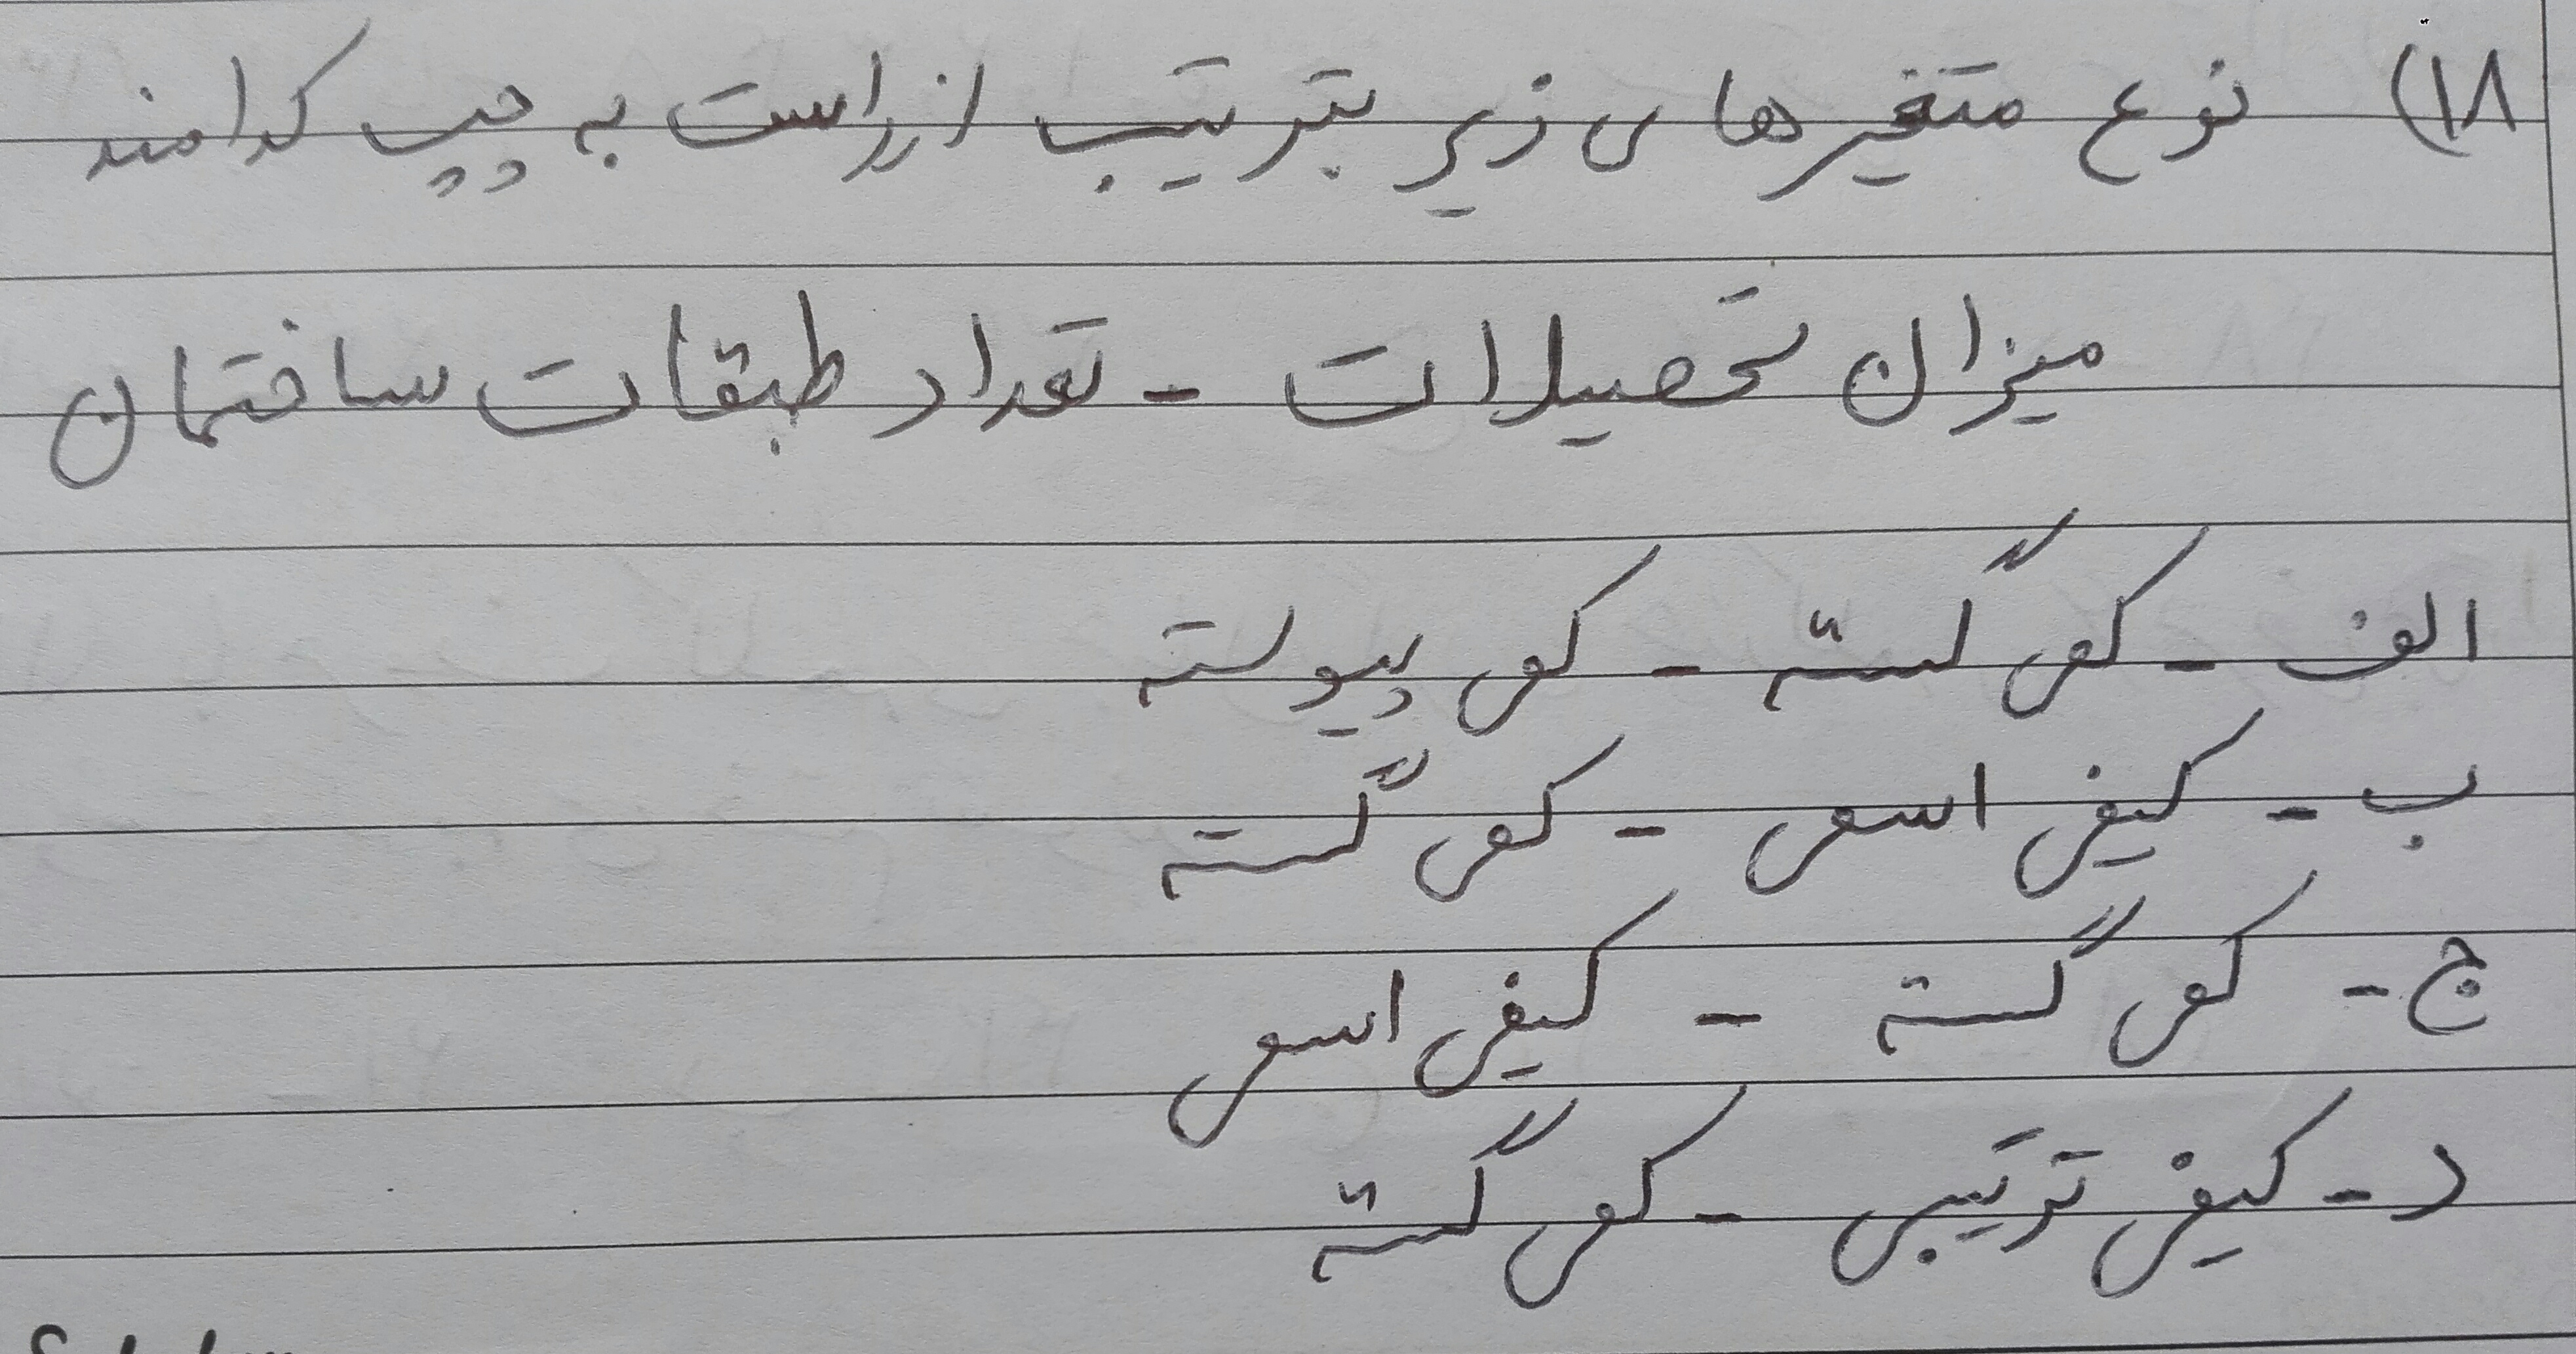 ۱۸) نوع متغیرهای زیر بترتیب از راست به چپ کدامند
میزان تحصیلات - تعداد طبقات ساختمان
الف - کمی گسسته - کمی پیوسته
ب - کیفی اسمی - کمی گسسته
ج - کمی گسسته - کیفی اسمی
د - کیفی ترتیبی - کمی گسسته